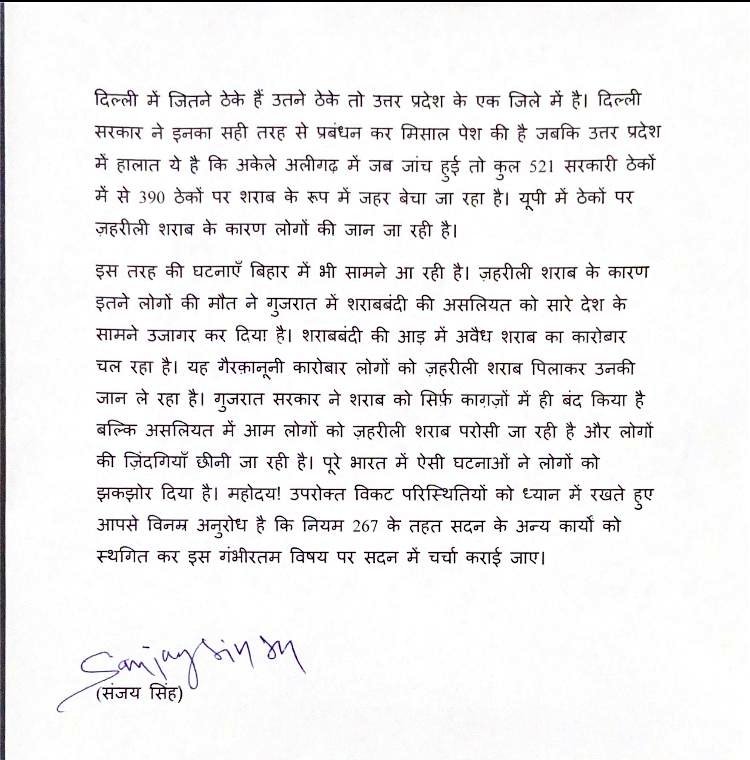 दिल्ली में जितने ठेके हैं उतने ठेके तो उत्तर प्रदेश के एक जिले में है। दिल्ली
सरकार ने इनका सही तरह से प्रबंधन कर मिसाल पेश की है जबकि उत्तर प्रदेश
में हालात ये है कि अकेले अलीगढ़ में जब जांच हुई तो कुल 521 सरकारी ठेकों
में से 390 ठेकों पर शराब के रूप में जहर बेचा जा रहा है। यूपी में ठेकों पर
ज़हरीली शराब के कारण लोगों की जान जा रही है।
इस तरह की घटनाएँ बिहार में भी सामने आ रही है। ज़हरीली शराब के कारण
इतने लोगों की मौत ने गुजरात में शराबबंदी की असलियत को सारे देश के
सामने उजागर कर दिया है। शराबबंदी की आड़ में अवैध शराब का कारोबार
चल रहा है। यह गैरक़ानूनी कारोबार लोगों को ज़हरीली शराब पिलाकर उनकी
जान ले रहा है। गुजरात सरकार ने शराब को सिर्फ़ काग़ज़ों में ही बंद किया है
बल्कि असलियत में आम लोगों को ज़हरीली शराब परोसी जा रही है और लोगों
की ज़िंदगियाँ छीनी जा रही है। पूरे भारत में ऐसी घटनाओं ने लोगों को
झकझोर दिया है। महोदय! उपरोक्त विकट परिस्थितियों को ध्यान में रखते हुए
आपसे विनम्र अनुरोध है कि नियम 267 के तहत सदन के अन्य कार्यों को
स्थगित कर इस गंभीरतम विषय पर सदन में चर्चा कराई जाए।
Sanjay Singh
(संजय सिंह)